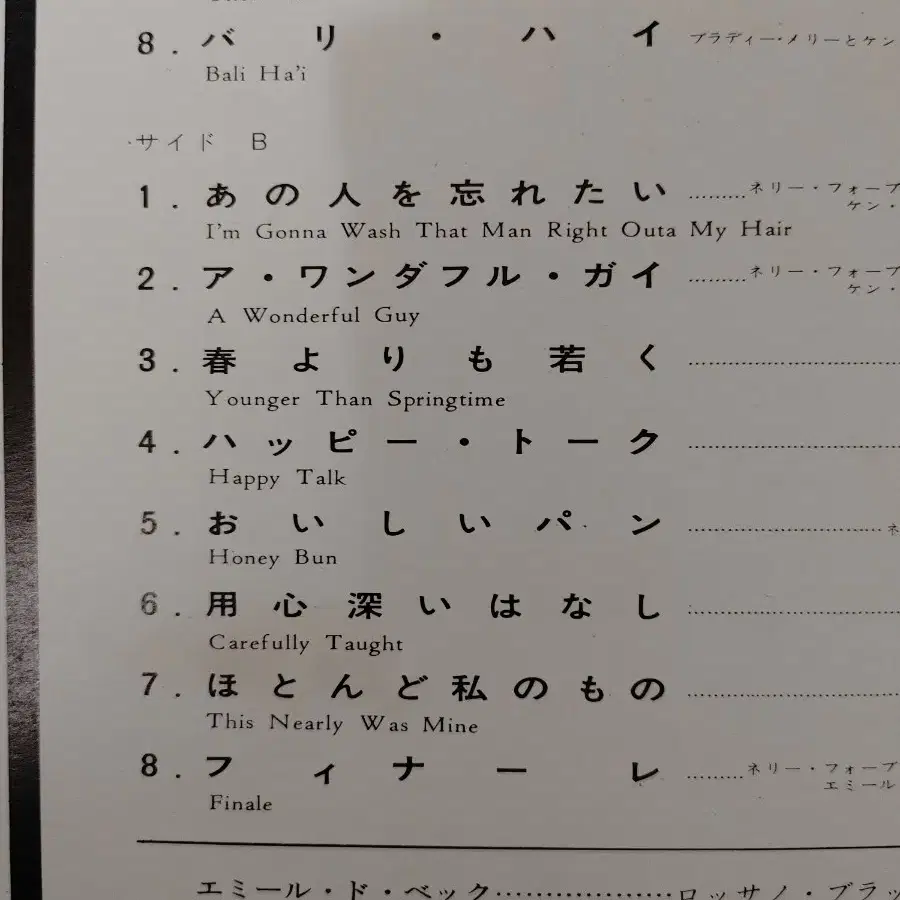 8. バリ・ハイ ブラディー・メリーとケン
Bali Ha'i
サイド B
1. あの人を忘れたい………ネリー・フォーブ
ケン・
I'm Gonna Wash That Man Right Outa My Hair
2. ア・ワンダフル・ガイ………ネリー・フォーブ
ケン・
A Wonderful Guy
3. 春よりも若く………………
Younger Than Springtime
4. ハッピー・トーク………………
Happy Talk
5. おいしいパン………………ネ
Honey Bun
6. 用心深いはなし………………
Carefully Taught
7. ほとんど私のもの………………
This Nearly Was Mine
8. フィナーレ………ネリー・フォーブ
エミール
Finale
エミール・ド・ベック………………ロッサノ・ブラッ